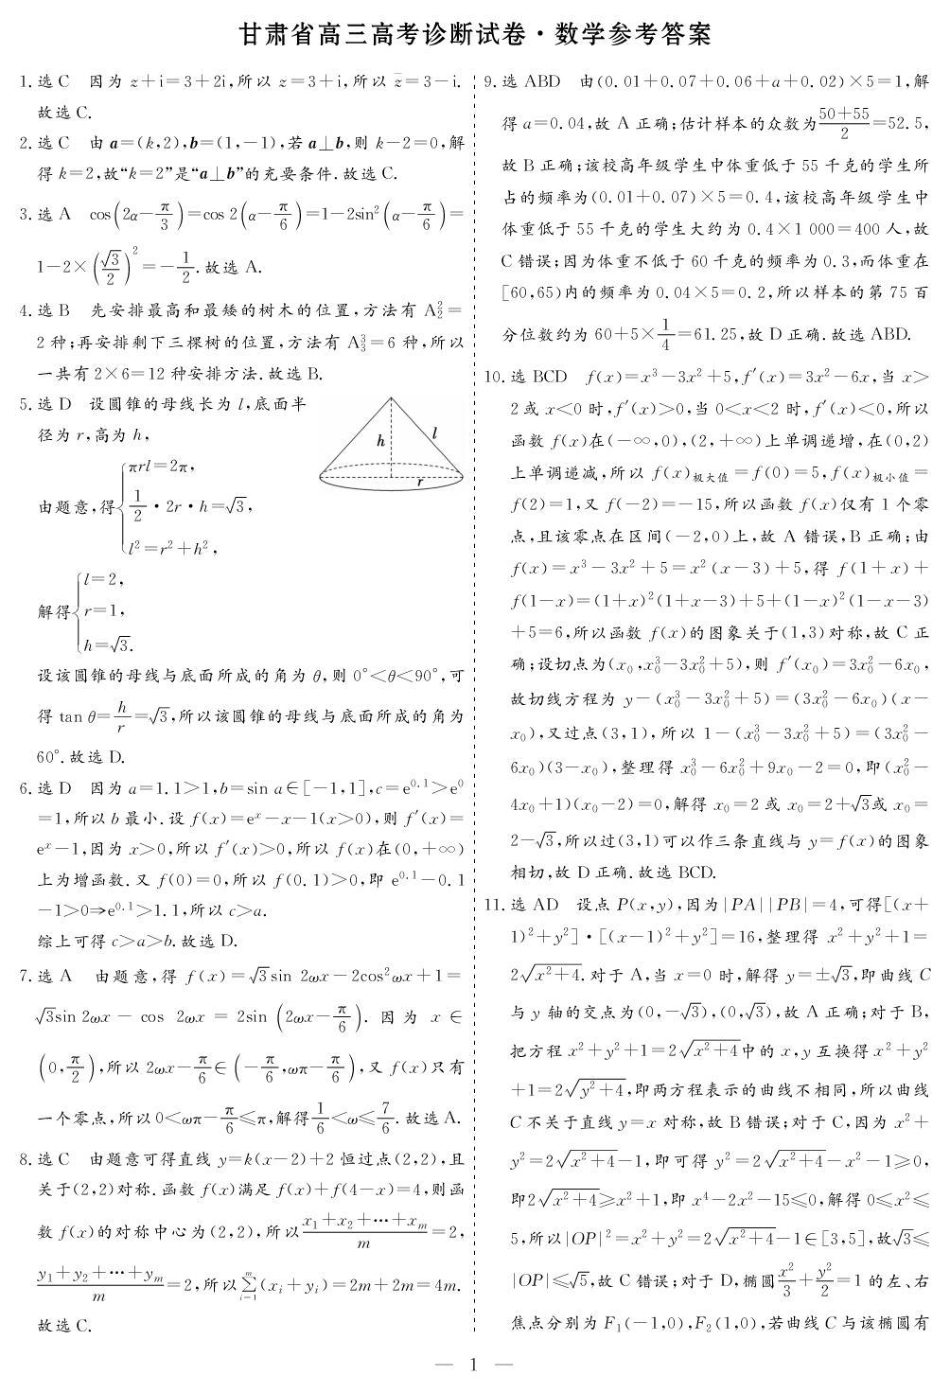 甘肃省高三高考诊断试卷·数学参考答案
1. 选 C  因为 z+i=3+2i,所以 z=3+i,所以 z̄=3-i.
故选 C.
2. 选 C  由 a=(k,2),b=(1,-1),若 a⊥b,则 k-2=0,解
得 k=2,故“k=2”是“a⊥b”的充要条件. 故选 C.
3. 选 A  cos(2α-π/3)=cos 2(α-π/6)=1-2sin²(α-π/6)=
1-2×(√3/2)²=-1/2. 故选 A.
4. 选 B  先安排最高和最矮的树木的位置,方法有 A₂²=
2 种;再安排剩下三棵树的位置,方法有 A₃³=6 种,所以
一共有 2×6=12 种安排方法. 故选 B.
5. 选 D  设圆锥的母线长为 l,底面半
径为 r,高为 h,
h l
r
由题意,得{πrl=2π,
1/2·2r·h=√3,
l²=r²+h²,
解得{l=2,
r=1,
h=√3.
设该圆锥的母线与底面所成的角为 θ,则 0°<θ<90°,可
得 tan θ=h/r=√3,所以该圆锥的母线与底面所成的角为
60°. 故选 D.
6. 选 D  因为 a=1.1>1,b=sin a∈[-1,1],c=e^0.1>e⁰
=1,所以 b 最小. 设 f(x)=eˣ-x-1(x>0),则 f′(x)=
eˣ-1,因为 x>0,所以 f′(x)>0,所以 f(x)在(0,+∞)
上为增函数. 又 f(0)=0,所以 f(0.1)>0,即 e^0.1-0.1
-1>0⇒e^0.1>1.1,所以 c>a.
综上可得 c>a>b. 故选 D.
7. 选 A  由题意,得 f(x)=√3sin 2ωx-2cos²ωx+1=
√3sin 2ωx - cos 2ωx = 2sin (2ωx-π/6). 因为 x∈
(0,π/2),所以 2ωx-π/6∈(-π/6,ωπ-π/6),又 f(x)只有
一个零点,所以 0<ωπ-π/6≤π,解得1/6<ω≤7/6. 故选 A.
8. 选 C  由题意可得直线 y=k(x-2)+2 恒过点(2,2),且
关于(2,2)对称. 函数 f(x)满足 f(x)+f(4-x)=4,则函
数 f(x)的对称中心为(2,2),所以(x₁+x₂+⋯+xₘ)/m=2,
(y₁+y₂+⋯+yₘ)/m=2,所以∑_{i=1}^{m}(xᵢ+yᵢ)=2m+2m=4m.
故选 C.
9. 选 ABD  由(0.01+0.07+0.06+a+0.02)×5=1,解
得 a=0.04,故 A 正确;估计样本的众数为(50+55)/2=52.5,
故 B 正确;该校高年级学生中体重低于 55 千克的学生所
占的频率为(0.01+0.07)×5=0.4,该校高年级学生中
体重低于 55 千克的学生大约为 0.4×1 000=400 人,故
C 错误;因为体重不低于 60 千克的频率为 0.3,而体重在
[60,65)内的频率为 0.04×5=0.2,所以样本的第 75 百
分位数约为 60+5×1/4=61.25,故 D 正确. 故选 ABD.
10. 选 BCD  f(x)=x³-3x²+5,f′(x)=3x²-6x,当 x>
2 或 x<0 时,f′(x)>0,当 0<x<2 时,f′(x)<0,所以
函数 f(x)在(-∞,0),(2,+∞)上单调递增,在(0,2)
上单调递减,所以 f(x)极大值=f(0)=5,f(x)极小值=
f(2)=1,又 f(-2)=-15,所以函数 f(x)仅有 1 个零
点,且该零点在区间(-2,0)上,故 A 错误,B 正确;由
f(x)=x³-3x²+5=x²(x-3)+5,得 f(1+x)+
f(1-x)=(1+x)²(1+x-3)+5+(1-x)²(1-x-3)
+5=6,所以函数 f(x)的图象关于(1,3)对称,故 C 正
确;设切点为(x₀,x₀³-3x₀²+5),则 f′(x₀)=3x₀²-6x₀,
故切线方程为 y-(x₀³-3x₀²+5)=(3x₀²-6x₀)(x-
x₀),又过点(3,1),所以 1-(x₀³-3x₀²+5)=(3x₀²-
6x₀)(3-x₀),整理得 x₀³-6x₀²+9x₀-2=0,即(x₀²-
4x₀+1)(x₀-2)=0,解得 x₀=2 或 x₀=2+√3或 x₀=
2-√3,所以过(3,1)可以作三条直线与 y=f(x)的图象
相切,故 D 正确. 故选 BCD.
11. 选 AD  设点 P(x,y),因为|PA||PB|=4,可得[(x+
1)²+y²]·[(x-1)²+y²]=16,整理得 x²+y²+1=
2√(x²+4). 对于 A,当 x=0 时,解得 y=±√3,即曲线 C
与 y 轴的交点为(0,-√3),(0,√3),故 A 正确;对于 B,
把方程 x²+y²+1=2√(x²+4)中的 x,y 互换得 x²+y²
+1=2√(y²+4),即两方程表示的曲线不相同,所以曲线
C 不关于直线 y=x 对称,故 B 错误;对于 C,因为 x²+
y²=2√(x²+4)-1,即可得 y²=2√(x²+4)-x²-1≥0,
即2√(x²+4)≥x²+1,即 x⁴-2x²-15≤0,解得 0≤x²≤
5,所以|OP|²=x²+y²=2√(x²+4)-1∈[3,5],故√3≤
|OP|≤√5,故 C 错误;对于 D,椭圆x²/3+y²/2=1 的左、右
焦点分别为 F₁(-1,0),F₂(1,0),若曲线 C 与该椭圆有
— 1 —